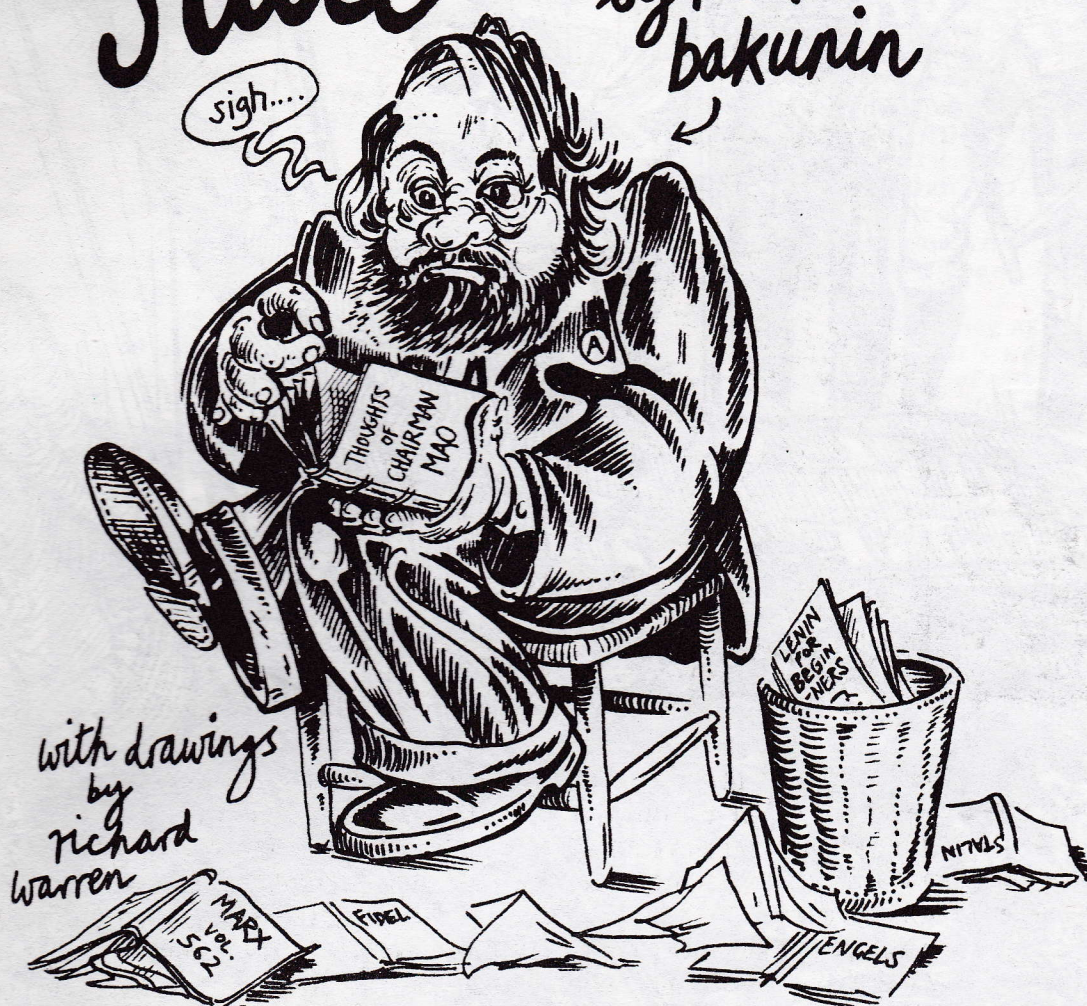 bakunin
sigh....
A
THOUGHTS
OF
CHAIRMAN
MAO
LENIN
FOR
BEGIN
NERS
with drawings
by
richard
warren
STALIN
MARX
VOL.
562
FIDEL
ENGELS